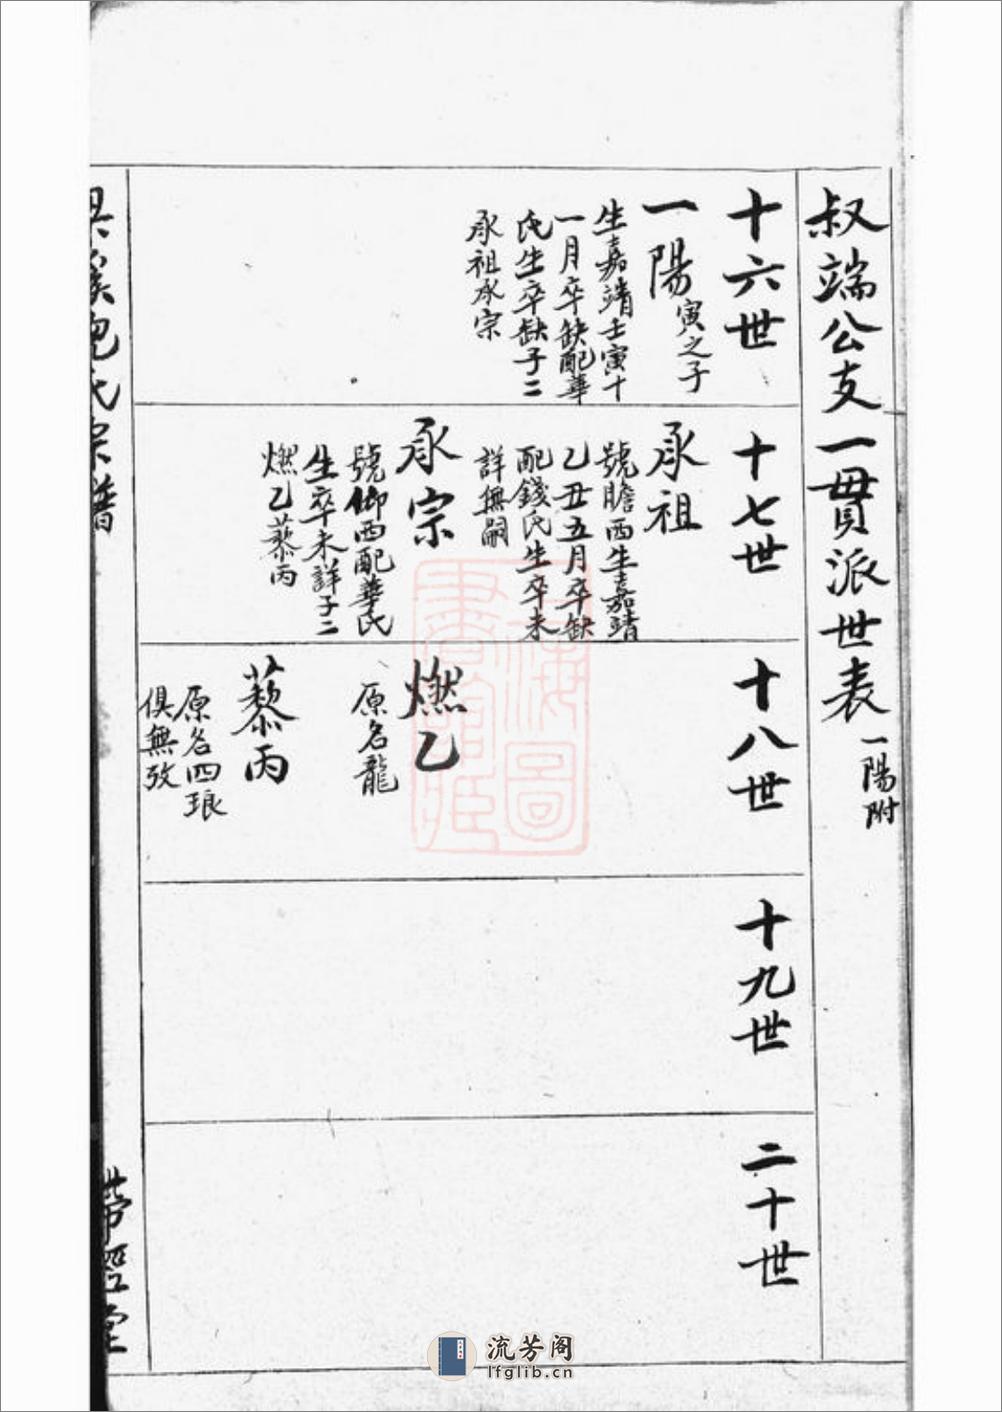 叔端公支一貫派世表
一陽附
十六世
一陽
寅之子
生嘉靖壬寅十
一月卒缺配華
氏生卒缺子二
承祖承宗
十七世
承祖
號瞻西生嘉靖
乙丑五月卒缺
配錢氏生卒未
詳無嗣
承宗
號仰西配華氏
生卒未詳子二
燃乙藜丙
十八世
燃乙
原名龍
藜丙
原名四琅
俱無攷
十九世
二十世
包氏宗譜
上海圖
書館藏
流芳阁
lfglib.cn